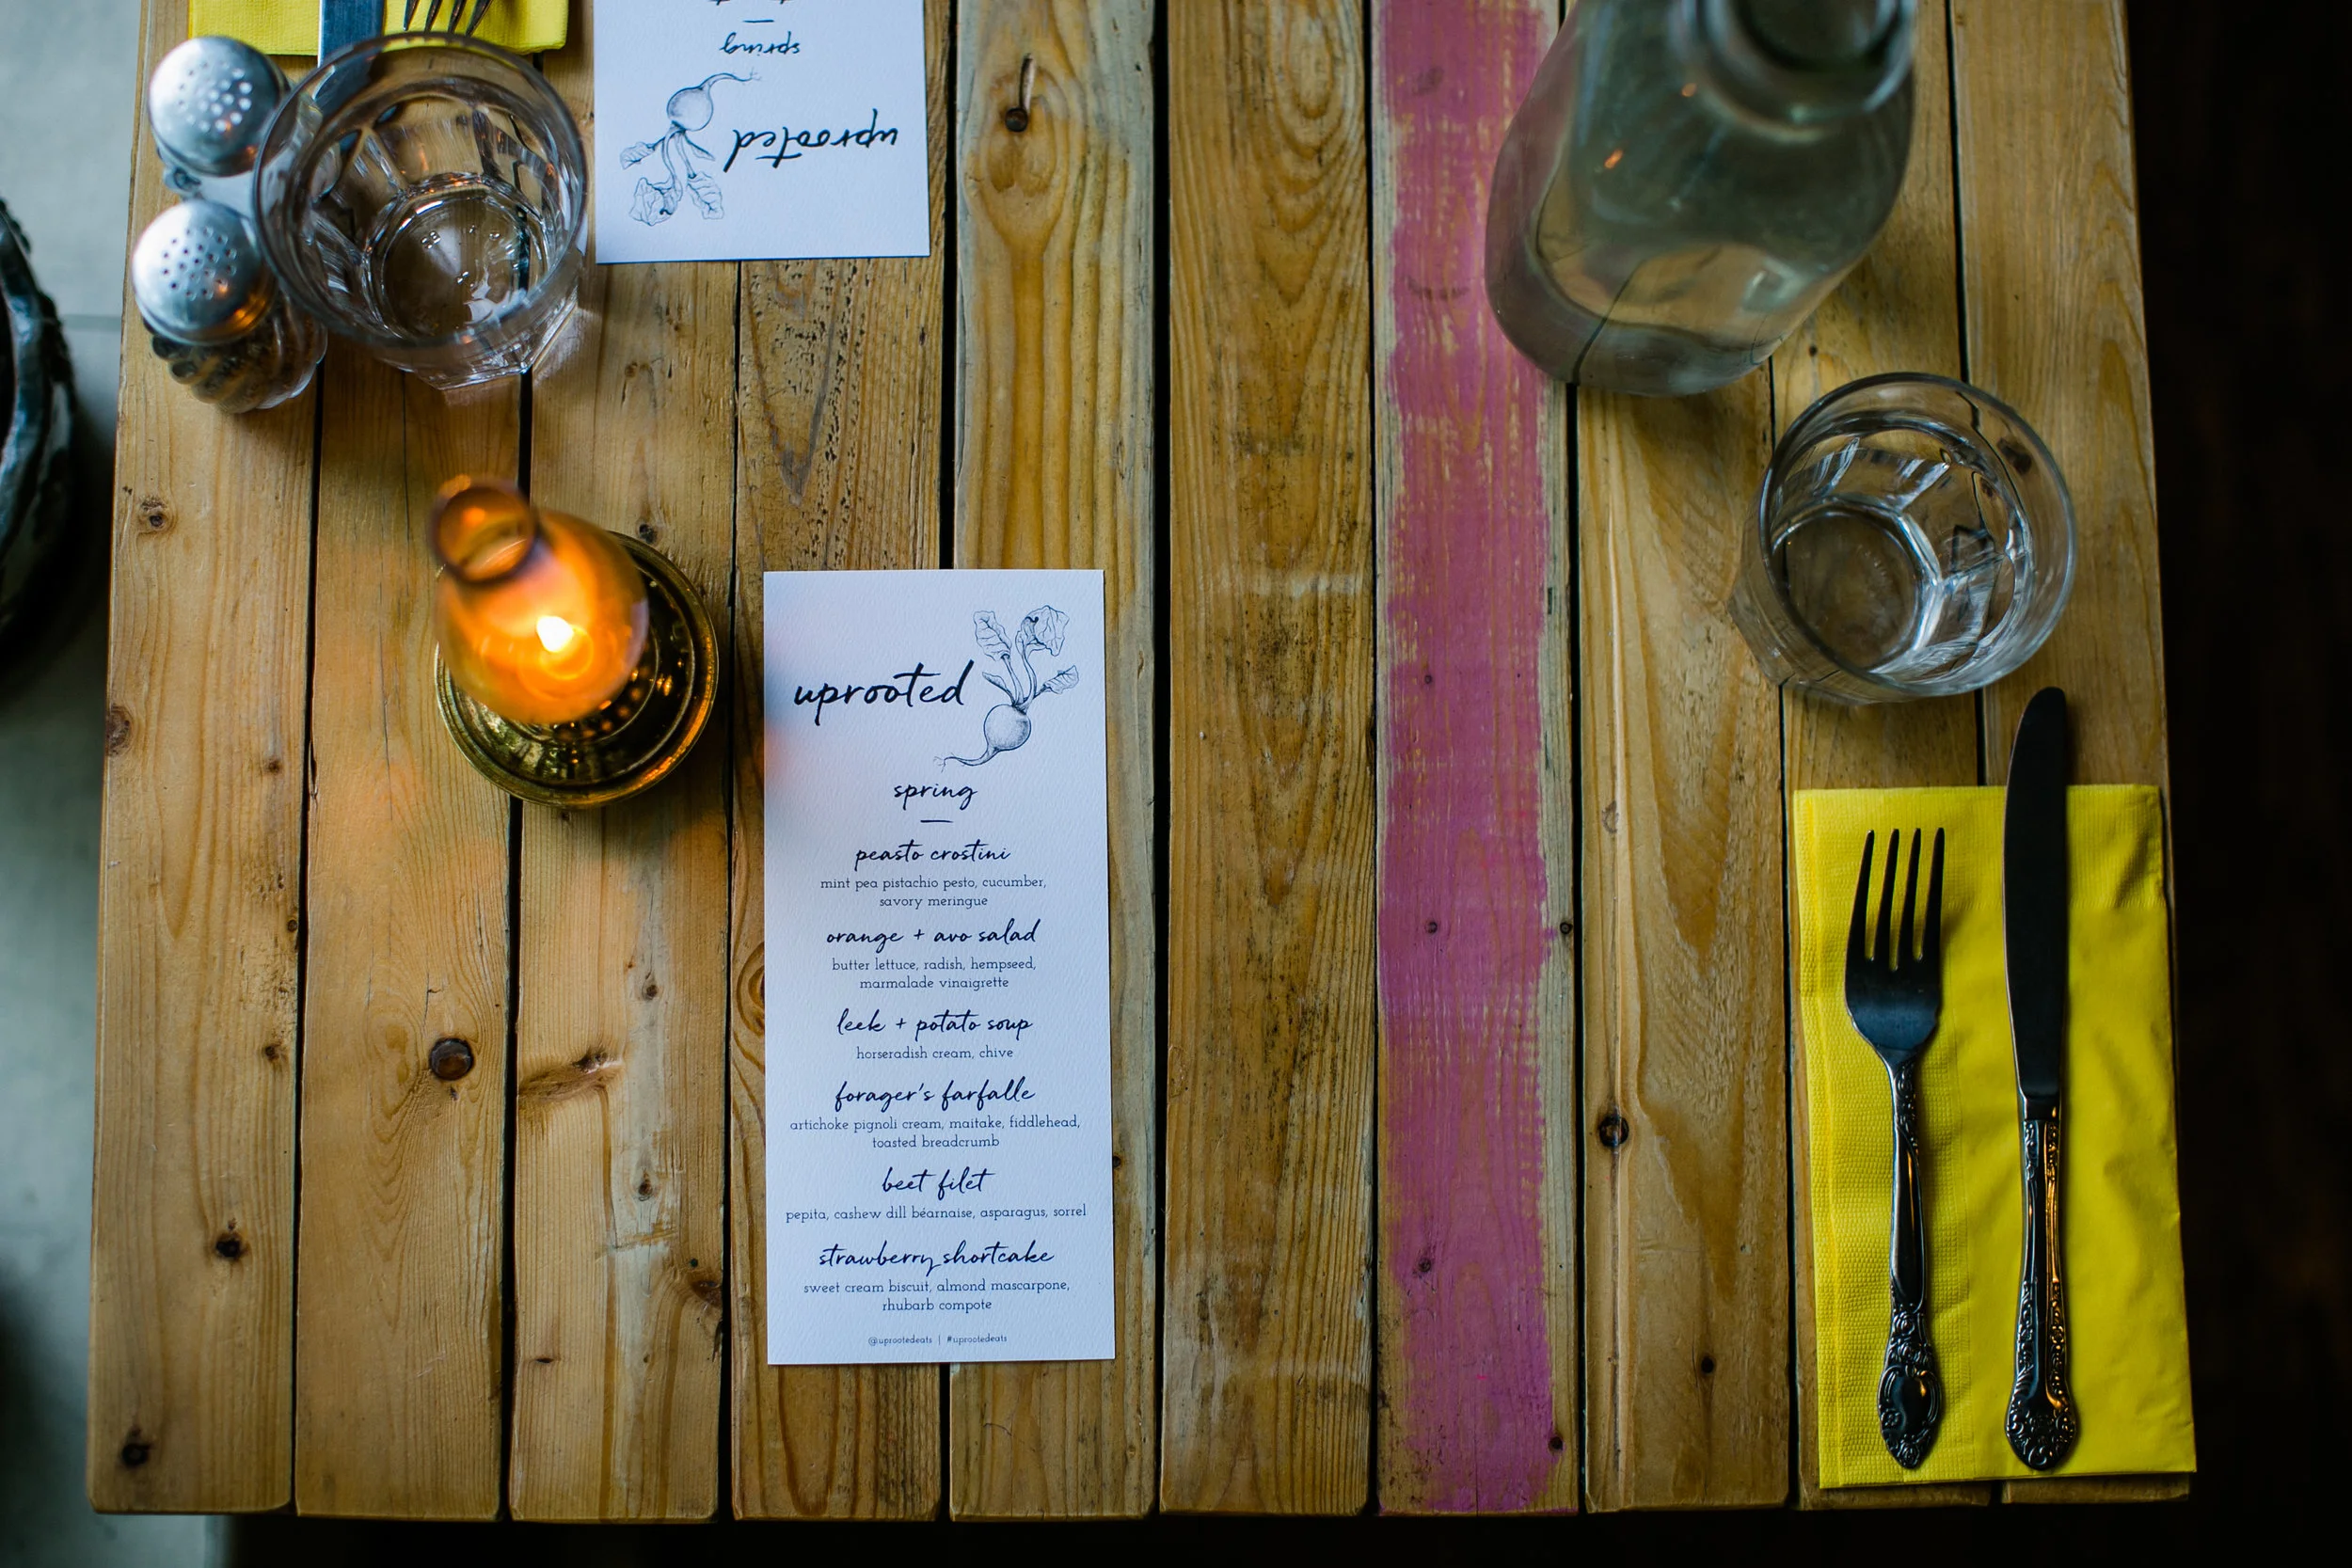 spring
uprooted
uprooted
spring
peasto crostini
mint pea pistachio pesto, cucumber,
savory meringue
orange + avo salad
butter lettuce, radish, hempseed,
marmalade vinaigrette
leek + potato soup
horseradish cream, chive
forager's farfalle
artichoke pignoli cream, maitake, fiddlehead,
toasted breadcrumb
beet filet
pepita, cashew dill béarnaise, asparagus, sorrel
strawberry shortcake
sweet cream biscuit, almond mascarpone,
rhubarb compote
@uprootedeats | #uprootedeats